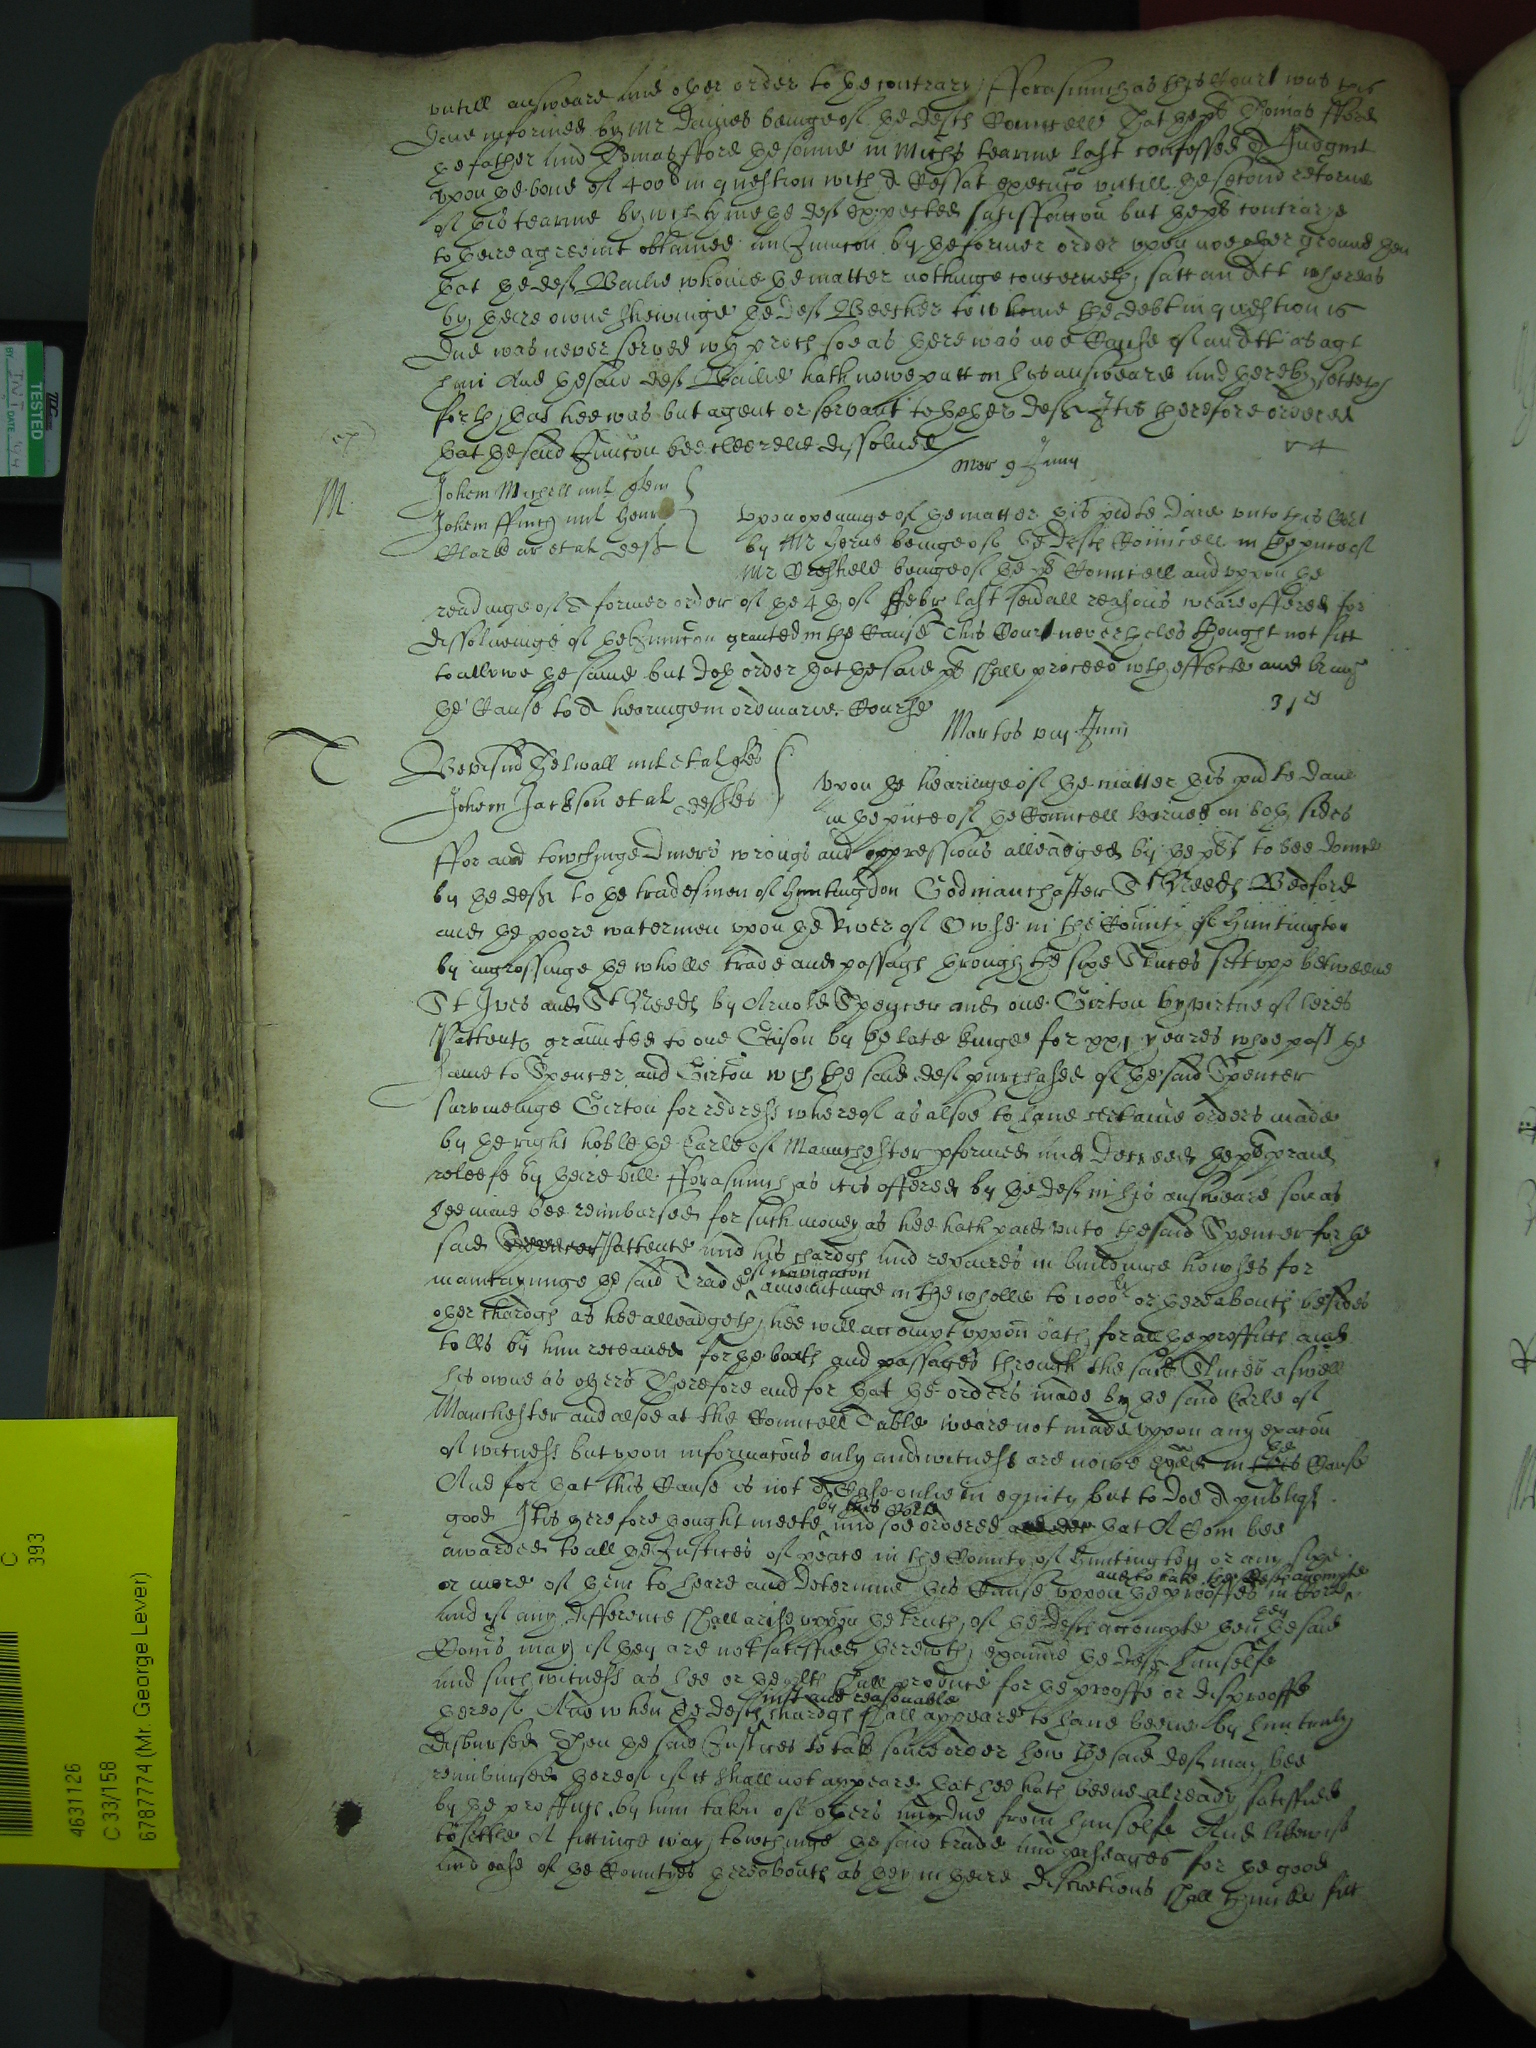 untill answeare and other order to the contrary, fforasmuch as this Court was this
daie informed by Mr Davies beinge of the defts Councell that the plt Thomas fford
the father and Thomas fford the sonne in Michs tearme last confessed a Judgmt
upon the bond of 400l in question with a Cessat execucio untill the second retorne
of this tearme by wch tyme the deft expected satisfaccon but the plts contrarye
to theire agreemt obtained an Iniunccon by the former order upon noe other ground then
that the deft Bailie whome the matter nothinge concerneth, satt an Att whereas
by theire owne shewinge the deft to whome the debt in question is
due was never served wth proces soe as there was noe Cause of an Att as agt
him And the said deft Bailie hath nowe putt in his answeare and thereby setteth
forth, that hee was but agent or servant to thother deft It is therefore ordered
that the said Iniuncon bee cleerelie dissolved
Mer 9 Junij
M
Johem Michell mil quem
Johem ffinch mil Henr
Clarke ar et al defts
Upon openinge of the matter this psente daie unto this Cort
by Mr Herne beinge of the defts Councell in the psence of
Mr beinge of the plts Councell and uppon the
readinge of a former order of the 4th of ffebr last sevall reasons weare offered for
dissolveinge of the Iniuncon graunted in the Cause This Court neverthelesse thought not fitt
to allowe the same but doth order that the said plt shall proceed wth effecte and bring
the Cause to a hearinge in ordinarie Course
Martis viij Junij
T
Bevisnd Thelwall mil et al quer
Johem Jackson et al defts
Upon the hearinge of the matter this psente daie
in the psence of the Councell learned on both sides
ffor and towchinge divers wrongs and oppressions alleadged by the plts to bee donne
by the defts to the tradesmen of Huntingdon Godmanchester St Needs Bedford
and the poore watermen upon the River of Owse in the County of Huntington
by ingrossinge the wholle trade and passage through the sixe Sluces sett upp betweene
St Ives and St Needs by Arnold Spencer and one Girton by virtue of lres
Pattents graunted to one Gason by the late kinge for xxj yeares whoe past the
same to Spencer and Girton wch the said deft purchased of the said Spencer
surviveinge Girton for redresse whereof as alsoe to have certaine orders made
by the right hoble the Earle of Mannchester pformed and decreed the plts praied
releefe by theire bill fforasmuch as it is offered by the deft in his answeare soe as
hee maie bee reimbursed for such money as hee hath paied unto the said Spencer for the
said Spencer Pattente and his chardge and repaires in buildinge howses for
maintayninge the said Trade of navigation amountinge in the wholle to 1000li or thereabouts besides
other chardge as hee alleadgeth, hee will accompt uppon oath for all the proffitts and
tolls by him receaved for the boats and passages through the said Sluces aswell
his owne as others Therefore and for that the orders made by the said Earle of
Manchester and alsoe at the Councell Table weare not made uppon any exacon
of witnesse but upon informacons only and witnesse are nowe exaied in this the Cause
And for that this Cause is not a Case onlie in equity but to doe a publiqe
good It is therefore thought meete by this Corte and soe ordered and dec that A Com bee
awarded to all the Justices of peace in the County of Huntington or any sixe
or more of them to heare and determine this Cause uppon the prooffes in Corte and to take the defts accompte
and if any difference shall arise uppon the truth of the defts accompte then they the said
Coms may if they are not satisfied therewth, examine the deft himselfe
and such witnesse as hee or the plts shall produce for the prooffe or disprooffe
thereof And when the defts just and reasonable chardge shall appeare to have beene by him truly
disbursed Then the said Justices to take some order how the said deft may bee
reimbursed thereof if it shall not appeare that hee hath beene already satisfied
by the proffitts by him taken of others and due from himselfe And likewise
to settle A fittinge way towchinge the said trade and passages for the good
and ease of the Countryes thereabouts as they in theire discretions shall thinke fitt
TESTED
BY
DATE
C
393
4631126
C 33/158
6787774 (Mr. George Lever)